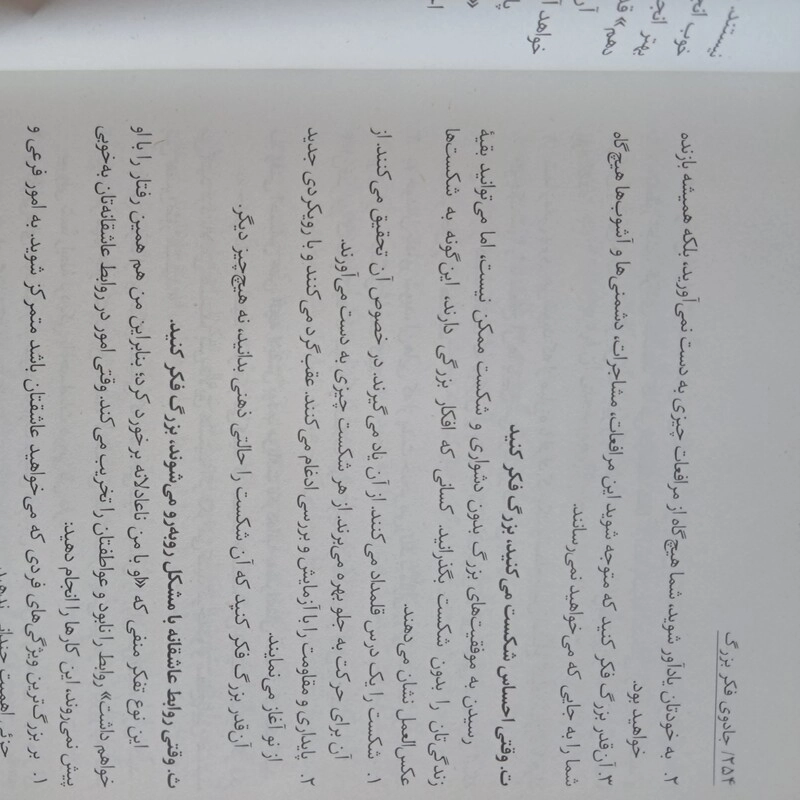 ۲۵۴/ جادوی فکر بزرگ
۲. به خودتان یادآور شوید، شما هیچ‌گاه از مرافعات چیزی به دست نمی‌آورید، بلکه همیشه بازنده
خواهید بود.
۳. آن‌قدر بزرگ فکر کنید که متوجه شوید این مرافعات، مشاجرات، دشمنی‌ها و آشوب‌ها هیچ‌گاه
شما را به جایی که می‌خواهید نمی‌رسانند.
ت. وقتی احساس شکست می‌کنید، بزرگ فکر کنید
رسیدن به موفقیت‌های بزرگ بدون دشواری و شکست ممکن نیست، اما می‌توانید بقیهٔ
زندگی‌تان را بدون شکست بگذرانید. کسانی که افکار بزرگی دارند، این‌گونه به شکست‌ها
عکس‌العمل نشان می‌دهند.
۱. شکست را یک درس قلمداد می‌کنند. از آن یاد می‌گیرند. در خصوص آن تحقیق می‌کنند. از
آن برای حرکت به جلو بهره می‌برند. از هر شکست چیزی به دست می‌آورند.
۲. پایداری و مقاومت را با آزمایش و بررسی ادغام می‌کنند. عقب‌گرد می‌کنند و با رویکردی جدید
از نو آغاز می‌نمایند.
آن‌قدر بزرگ فکر کنید که آن شکست را حالتی ذهنی بدانید، نه هیچ‌چیز دیگر.
ث. وقتی روابط عاشقانه با مشکل روبه‌رو می‌شوند، بزرگ فکر کنید.
این نوع تفکر منفی که «او با من ناعادلانه برخورد کرد؛ بنابراین من هم همین رفتار را با او
خواهم داشت» روابط را نابود و عواطفتان را تخریب می‌کند. وقتی امور در روابط عاشقانه‌تان به‌خوبی
پیش نمی‌روند، این کارها را انجام دهید:
۱. بر بزرگ‌ترین ویژگی‌های فردی که می‌خواهید عاشقتان باشد متمرکز شوید. به امور فرعی و
جزئی اهمیت چندانی ندهید.
نیستند.
خوب
بهتر
دهم»
خواهد